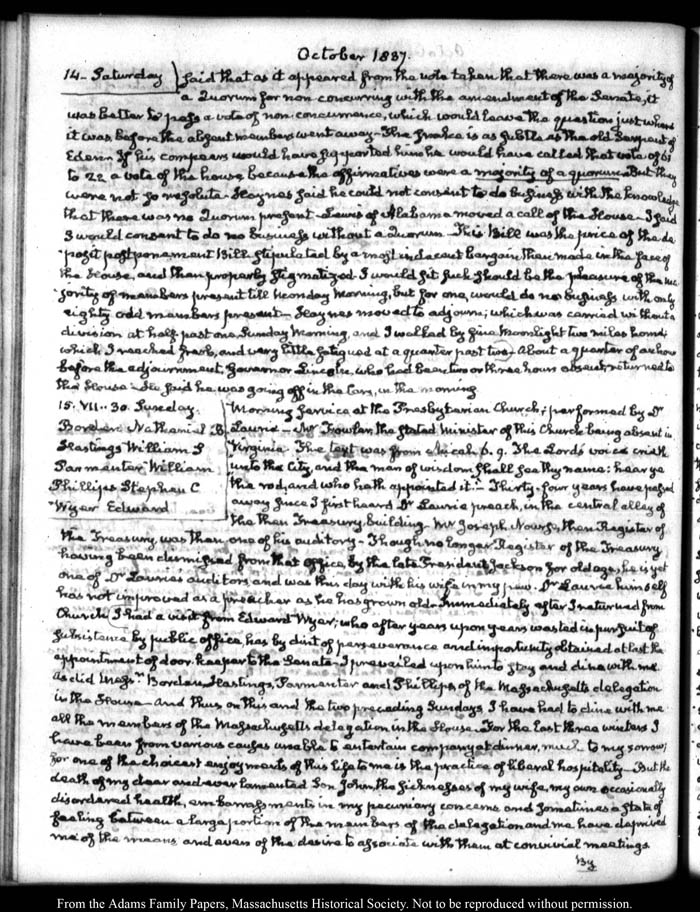 October 1837.
14 - Saturday } said that as it appeared from the vote taken that there was a majority of
a Quorum for non concurring with the amendment of the Senate, it
was better to pass a vote of non-concurrence, which would leave the question just where
it was before the absent members went away - The is as subtle as the old Serpent of
Eden. If his compeers would have supported him he would have called that vote of 61
to 22 a vote of the house, because the affirmatives were a majority of a quorum - But they
were not so resolute. Haynes said he could not consent to do business, with the knowledge
that there was no Quorum present - Lewis of Alabama moved a call of the House - I said
I would consent to do no business without a Quorum - This Bill was the price of the de
posit postponement Bill stipulated by a most indecent bargain then made in the face of
the House, and then properly stigmatized. I would sit such should be the pleasure of the ma
jority of members present till Monday Morning, but for one, would do no business with only
eighty odd members present - Haynes moved to adjourn; which was carried without a
division at half past one, Sunday Morning, and I walked by fine Moonlight two miles home;
which I reached fresh, and very little fatigued at a quarter past two - About a quarter of an hour
before the adjournment, Governor Lincoln, who had been two or three hours absent, returned to
the House - He said he was going off in the Cars, in the morning.
15. VII.. 30. Sunday.
Borden Nathaniel B
Hastings William S
Parmenter William
Phillips Stephen C
Wyer Edward
Morning service at the Presbyterian Church; performed by Dr
Laurie - Mr Fowler the stated Minister of this Church being absent in
Virginia. The text was from Micah 6. 9. The Lord's voice crieth
unto the City, and the man of wisdom shall see thy name: hear ye
the rod, and who hath appointed it." - Thirty-four years have passed
away since I first heard Dr Laurie preach, in the central alley of
the then Treasury building - Mr Joseph Nourse, then Register of
the Treasury, was then one of his auditory - Though no longer Register of the Treasury
having been dismissed from that office, by the late President Jackson for old age, he is yet
one of Dr Laurie's auditors, and was this day with his wife in my pew. Dr Laurie himself
has not improved as a preacher as he has grown old. Immediately after I returned from
Church, I had a visit from Edward Wyer, who after years upon years wasted in pursuit of
subsistence by public office, has by dint of perseverance and importunity obtained at last the
appointment of door-keeper to the Senate - I prevailed upon him to stay and dine with me
as did Messrs Borden, Hastings, Parmenter and Phillips of the Massachusetts delegation
in the House - And thus on this and the two preceding Sundays I have had to dine with me
all the members of the Massachusetts delegation in the House. For the last three winters I
have been from various causes unable to entertain company at dinner, much to my sorrow;
for one of the choicest enjoyments of this life to me is the practice of liberal hospitality - But the
death of my dear and ever lamented Son John, the sicknesses of my wife, my own occasionally
disordered health, embarrassments in my pecuniary concerns and sometimes a state of
feeling between a large portion of the members of the delegation and me have deprived
me of the means and even of the desire to associate with them at convivial meetings.
By
From the Adams Family Papers, Massachusetts Historical Society. Not to be reproduced without permission.